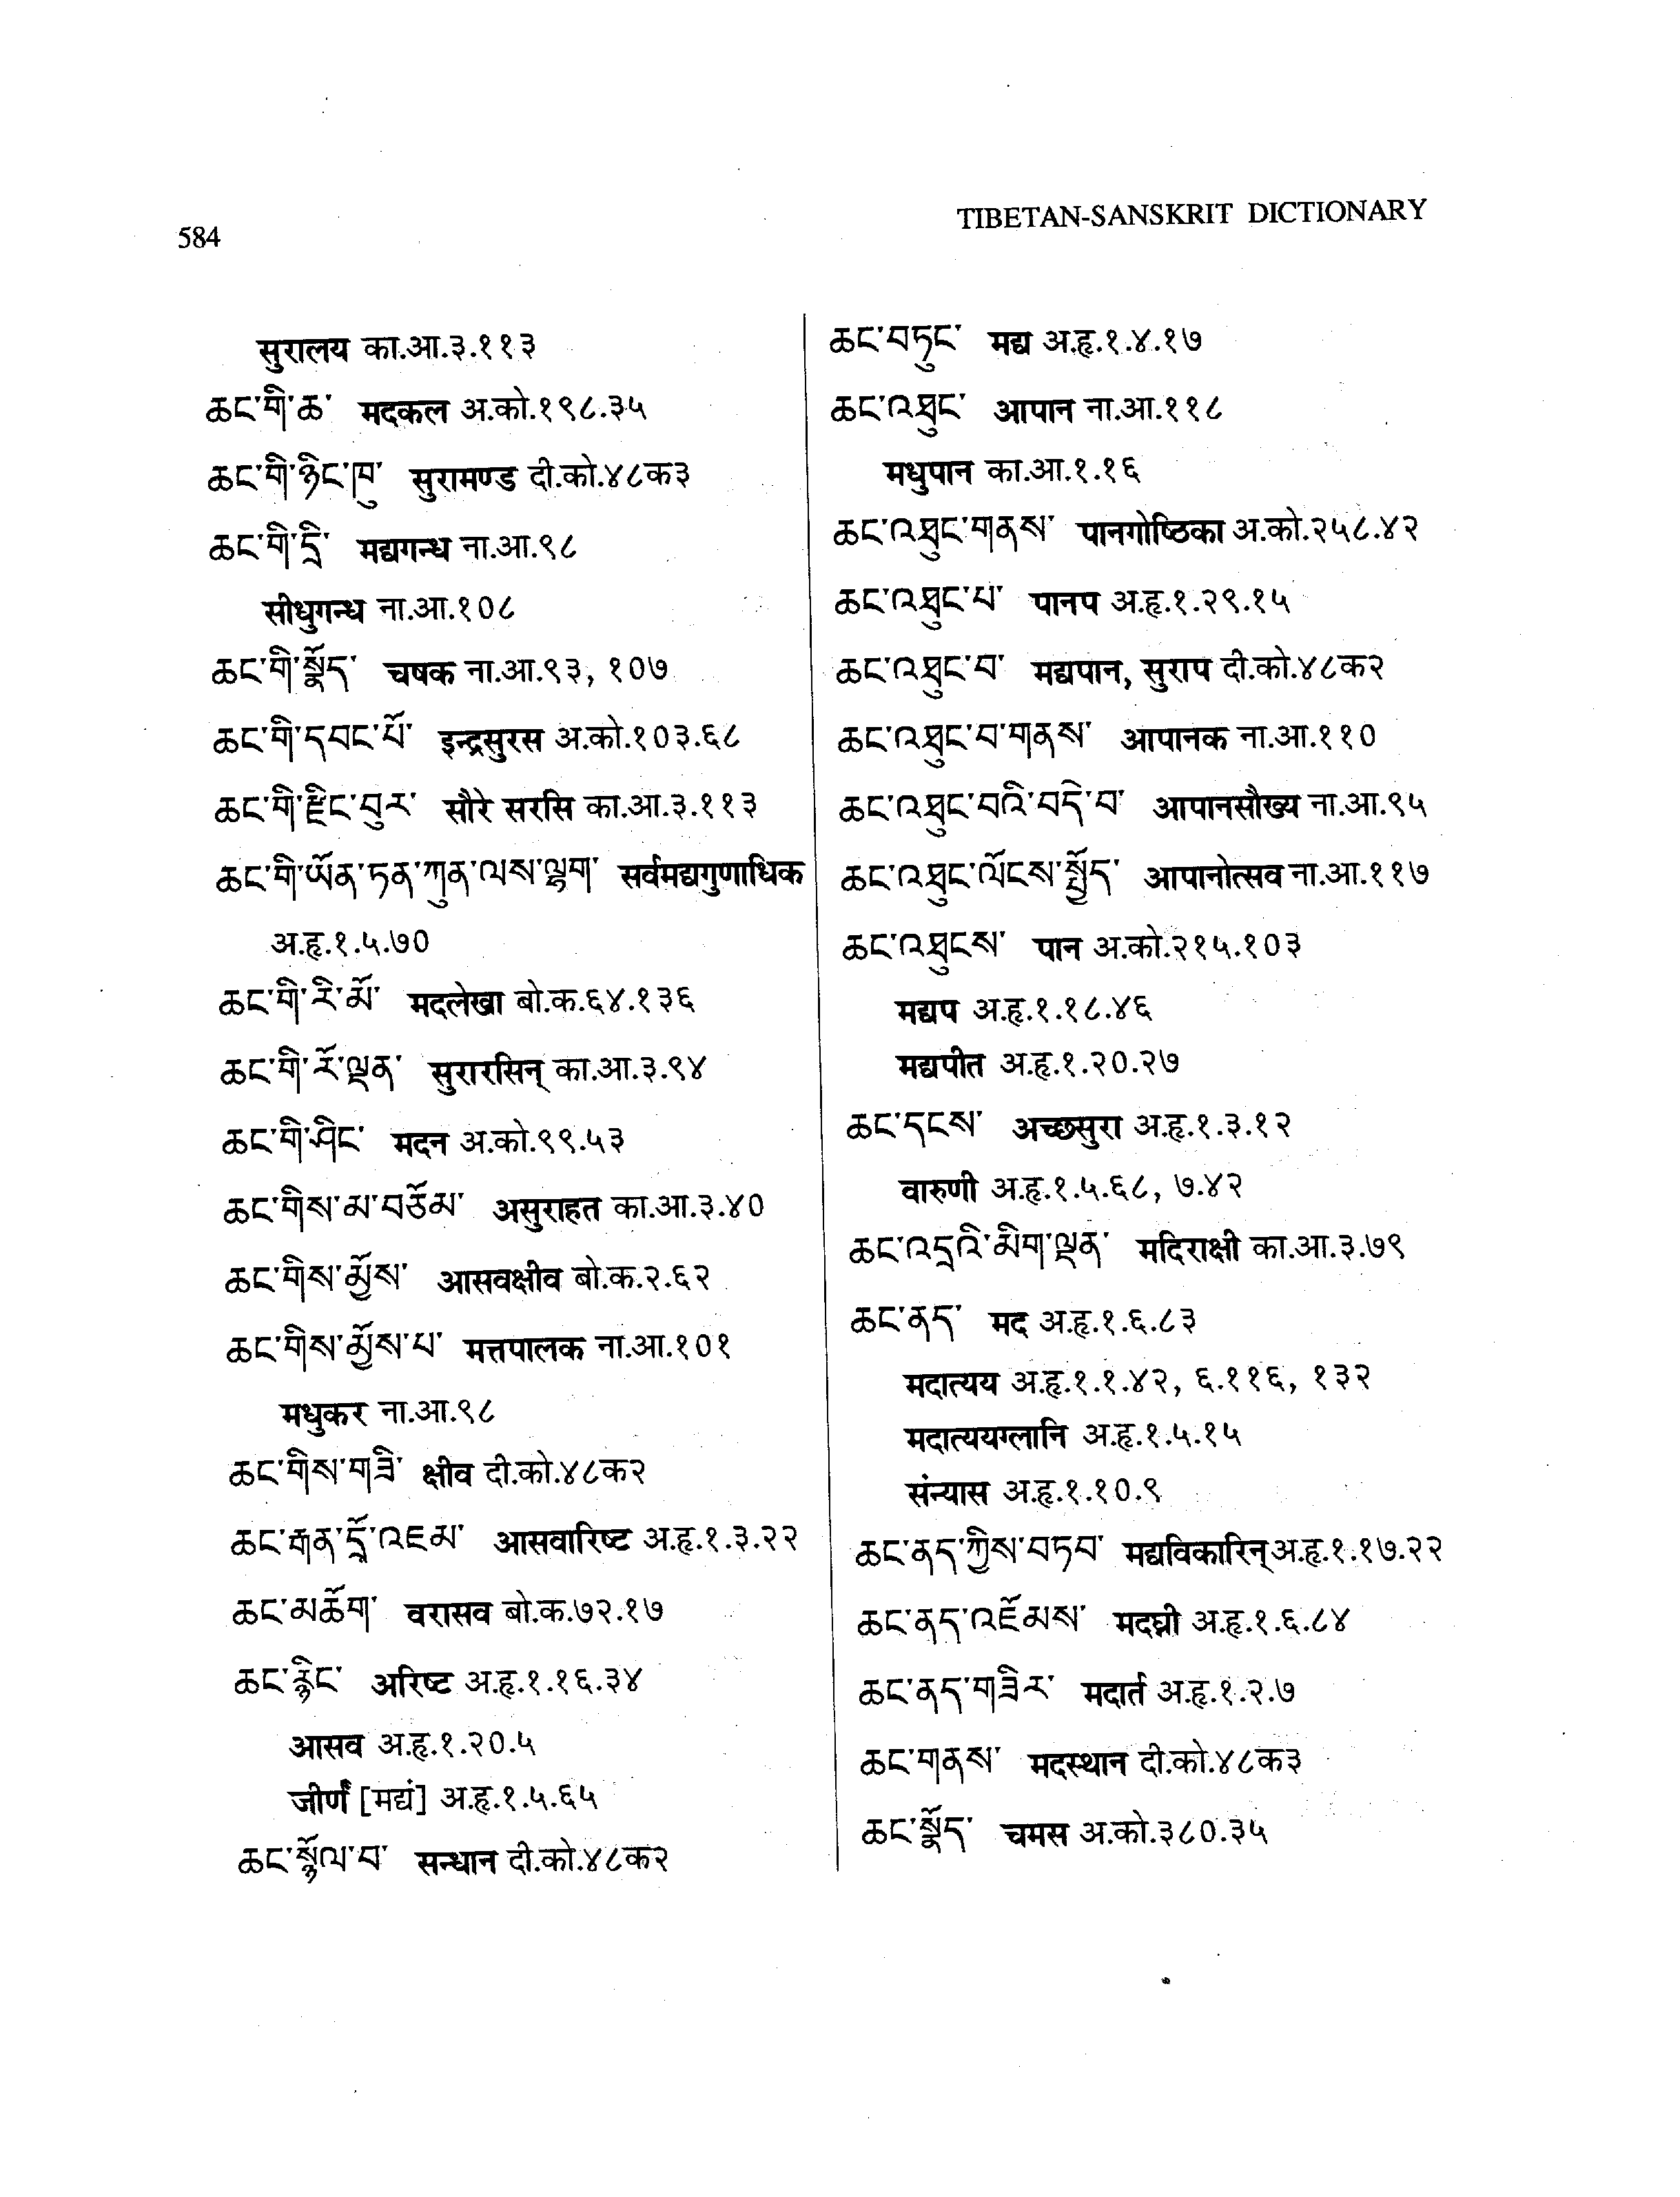 584
TIBETAN-SANSKRIT DICTIONARY
सुरालय का.आ.३.११३
ཆང་གི་ཆ་ मदकल अ.को.१९८.३५
ཆང་གི་ཉིང་ཁུ་ सुरामण्ड दी.को.४८क३
ཆང་གི་དྲི་ मद्यगन्ध ना.आ.९८
सीधुगन्ध ना.आ.१०८
ཆང་གི་སྣོད་ चषक ना.आ.९३, १०७
ཆང་གི་དབང་པོ་ इन्द्रसुरस अ.को.१०३.६८
ཆང་གི་རྫིང་བུར་ सौरे सरसि का.आ.३.११३
ཆང་གི་ཡོན་ཏན་ཀུན་ལས་ལྷག་ सर्वमद्यगुणाधिक
अ.हृ.१.५.७०
ཆང་གི་རི་མོ་ मदलेखा बो.क.६४.१३६
ཆང་གི་རོ་ལྡན་ सुरारसिन् का.आ.३.९४
ཆང་གི་ཤིང་ मदन अ.को.९९.५३
ཆང་གིས་མ་བཅོམ་ असुराहत का.आ.३.४०
ཆང་གིས་མྱོས་ आसवक्षीव बो.क.२.६२
ཆང་གིས་མྱོས་པ་ मत्तपालक ना.आ.१०१
मधुकर ना.आ.९८
ཆང་གིས་གཟི་ क्षीव दी.को.४८क२
ཆང་རྒན་དྲོ་འཇམ་ आसवारिष्ट अ.हृ.१.३.२२
ཆང་མཆོག་ वरासव बो.क.७२.१७
ཆང་རྙིང་ अरिष्ट अ.हृ.१.१६.३४
आसव अ.हृ.१.२०.५
जीर्णं [मद्यं] अ.हृ.१.५.६५
ཆང་སྙོལ་བ་ सन्धान दी.को.४८क२
ཆང་བཏུང་ मद्य अ.हृ.१.४.१७
ཆང་འཐུང་ आपान ना.आ.११८
मधुपान का.आ.१.१६
ཆང་འཐུང་གནས་ पानगोष्ठिका अ.को.२५८.४२
ཆང་འཐུང་པ་ पानप अ.हृ.१.२९.१५
ཆང་འཐུང་བ་ मद्यपान, सुराप दी.को.४८क२
ཆང་འཐུང་བ་གནས་ आपानक ना.आ.११०
ཆང་འཐུང་བའི་བདེ་བ་ आपानसौख्य ना.आ.९५
ཆང་འཐུང་ལོངས་སྤྱོད་ आपानोत्सव ना.आ.११७
ཆང་འཐུངས་ पान अ.को.२१५.१०३
मद्यप अ.हृ.१.१८.४६
मद्यपीत अ.हृ.१.२०.२७
ཆང་དངས་ अच्छसुरा अ.हृ.१.३.१२
वारुणी अ.हृ.१.५.६८, ७.४२
ཆང་འདྲའི་མིག་ལྡན་ मदिराक्षी का.आ.३.७९
ཆང་ནད་ मद अ.हृ.१.६.८३
मदात्यय अ.हृ.१.१.४२, ६.११६, १३२
मदात्ययग्लानि अ.हृ.१.५.१५
संन्यास अ.हृ.१.१०.९
ཆང་ནད་ཀྱིས་བཏབ་ मद्यविकारिन् अ.हृ.१.१७.२२
ཆང་ནད་འཇོམས་ मदघ्नी अ.हृ.१.६.८४
ཆང་ནད་གཟིར་ मदार्त अ.हृ.१.२.७
ཆང་གནས་ मदस्थान दी.को.४८क३
ཆང་སྣོད་ चमस अ.को.३८०.३५